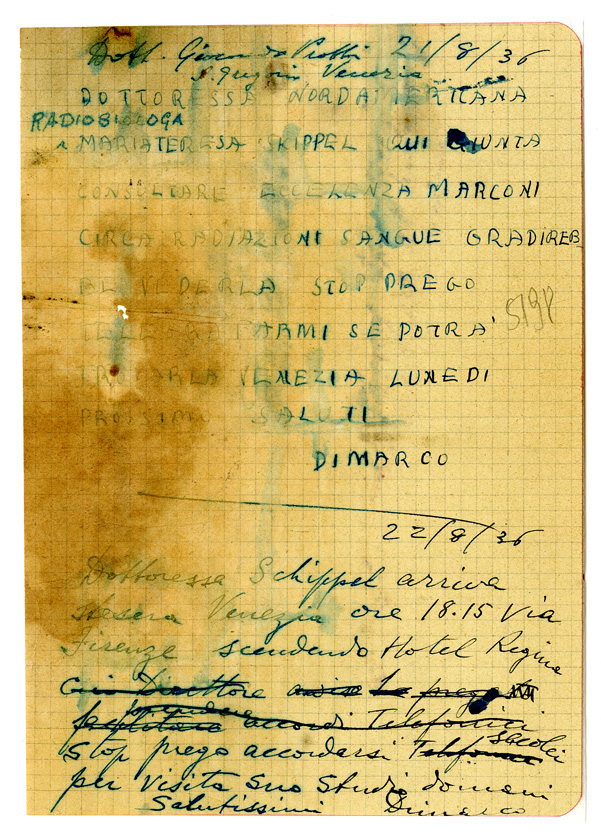 Dott. Giocondo Protti 21/8/36
S. Gregorio Venezia
DOTTORESSA NORDAMERICANA
RADIOBIOLOGA
MARIATERESA SKIPPEL QUI GIUNTA
CONSULTARE ECCELLENZA MARCONI
CIRCA RADIAZIONI SANGUE GRADIREB
VEDERLA STOP PREGO
TELEGRAFARMI SE POTRA'
TROVARLA VENEZIA LUNEDI
PROSSIMO SALUTI
DIMARCO
519P
22/8/36
Dottoressa Schippel arriva
stasera Venezia ore 18.15 via
Firenze scendendo Hotel Regina
Direttore prego
facilitare accordi Telefonici
Stop prego accordarsi Telefonare secolei
per visita suo studio domani
Salutissimi Dimarco